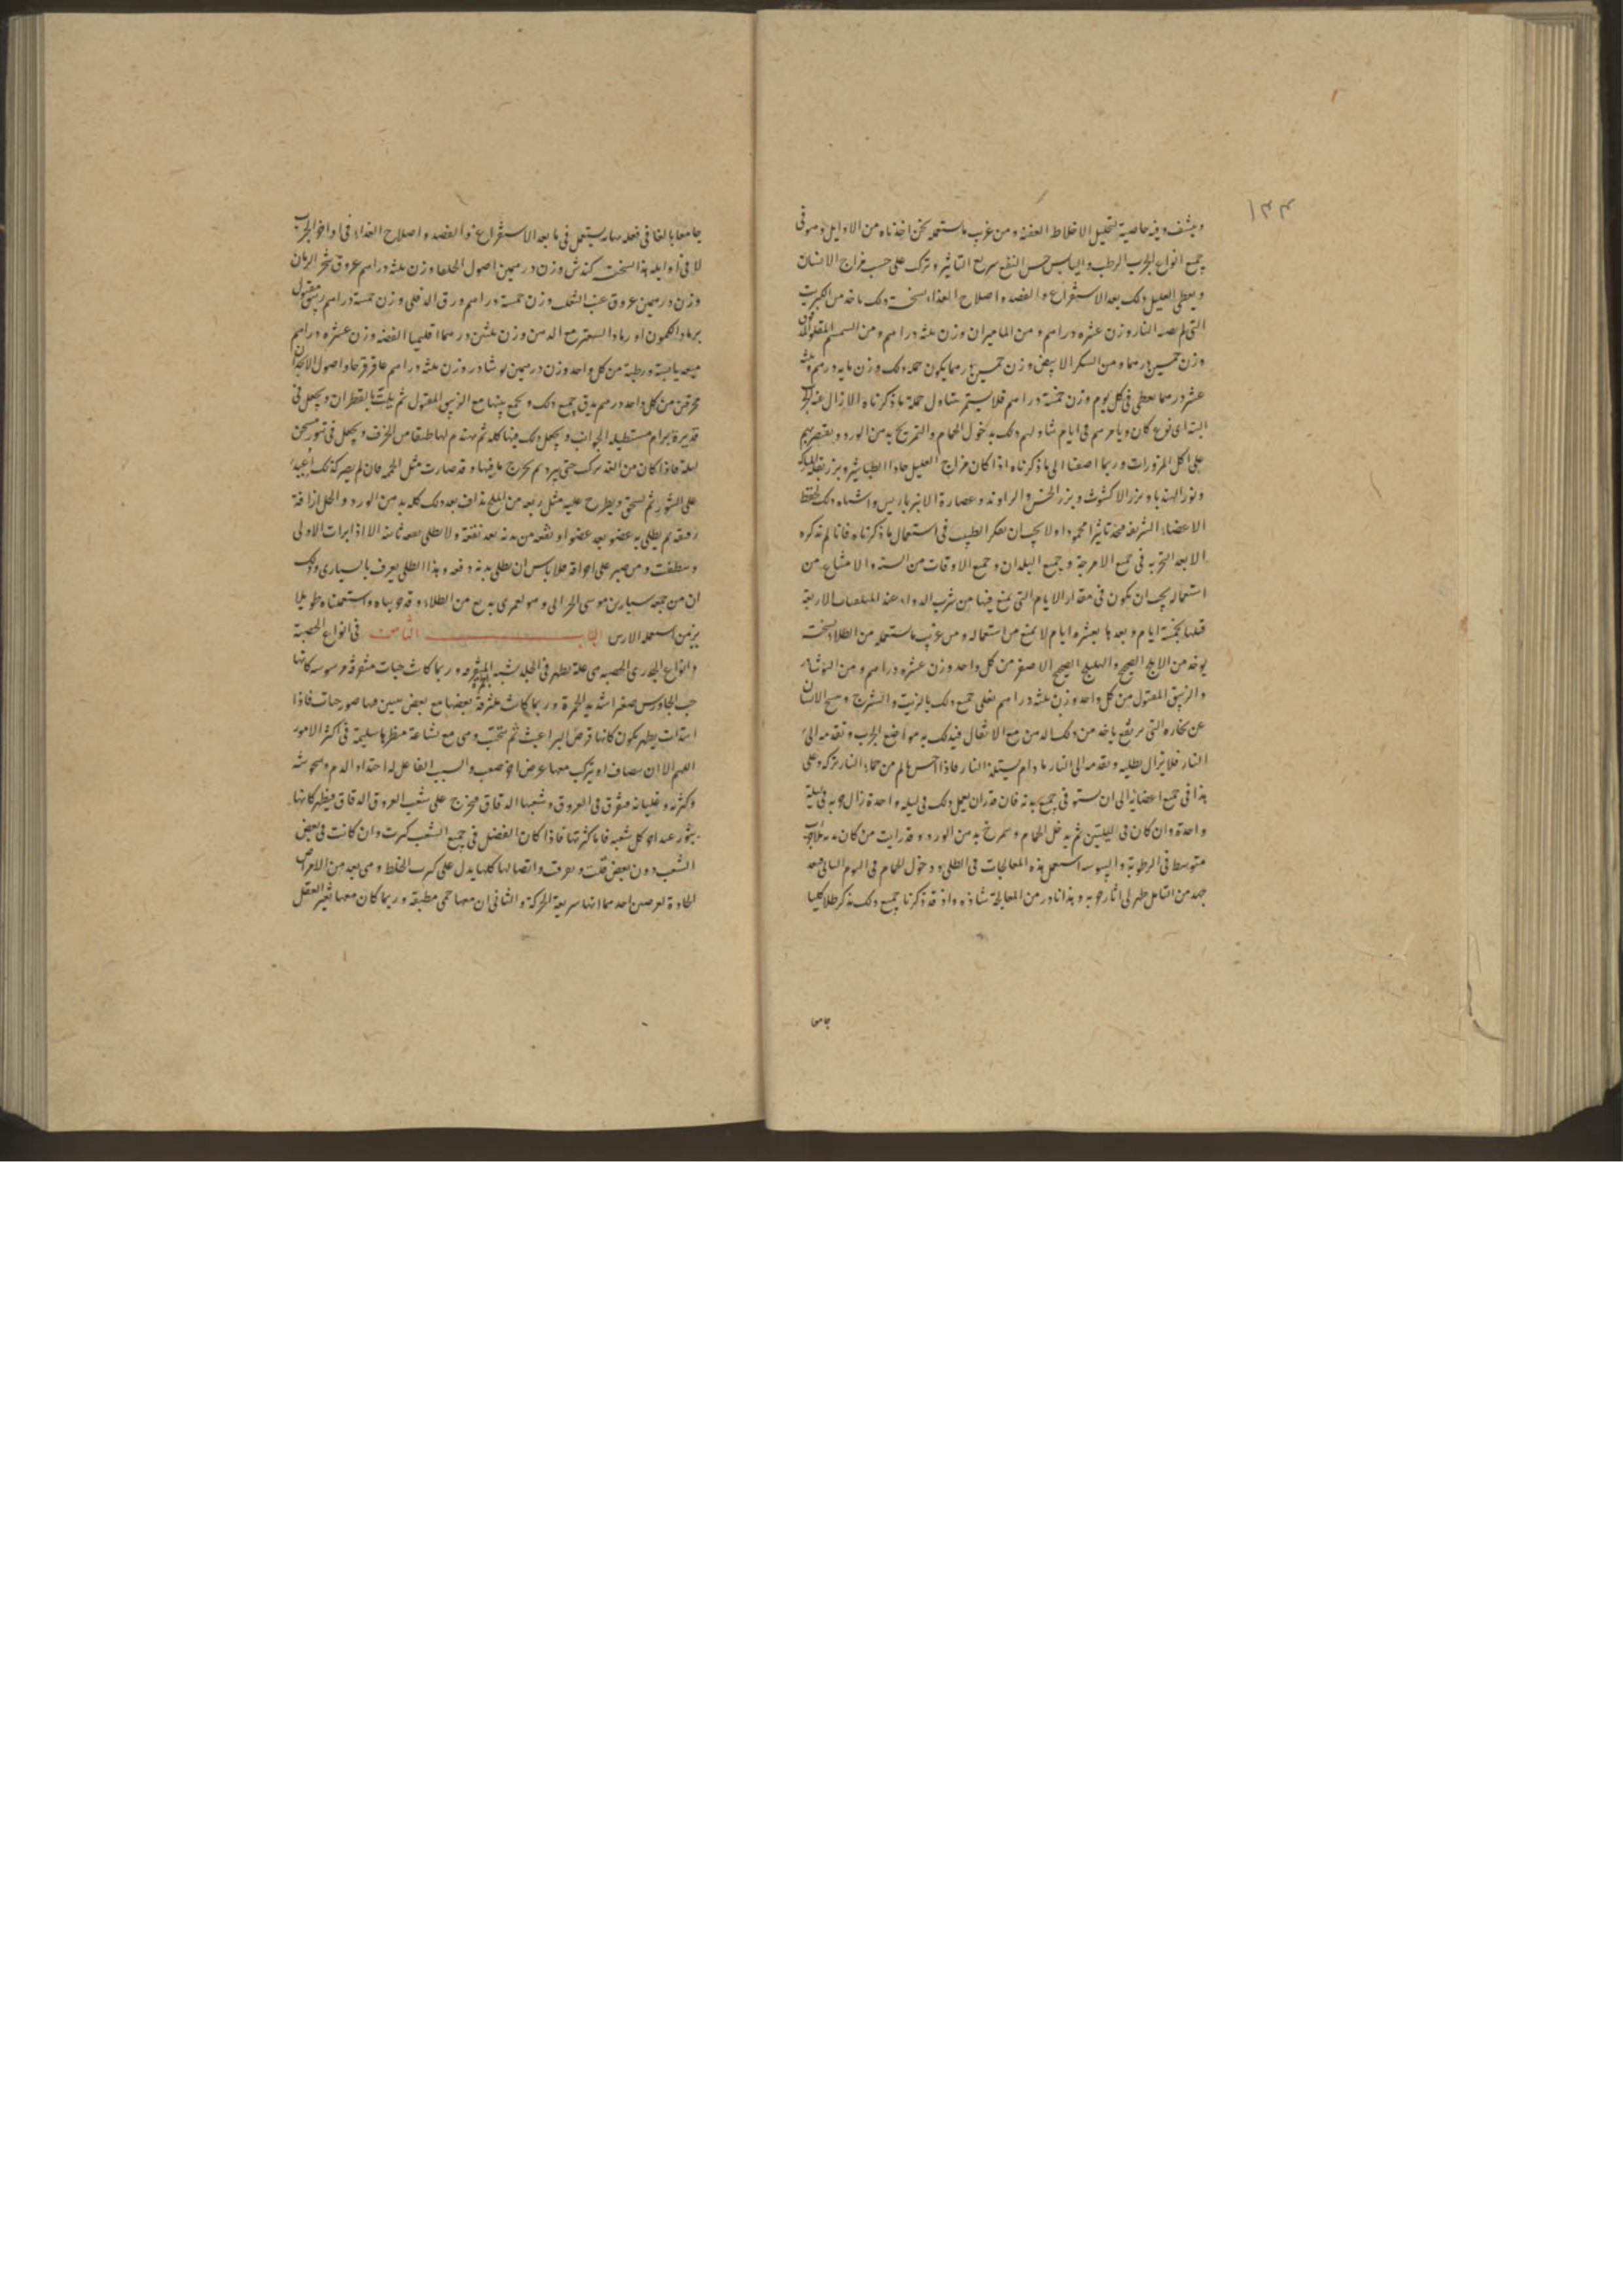 ١٣٤
وينشف وفيه خاصية لتحليل الاخلاط العفنة ومن غريب ما نستعمله نحن اخذناه من الاوايل وهو في
جميع انواع الجرب الرطب واليابس حسن النفع سريع التاثير وتركب على حسب مزاج الانسان
ويعطى العليل ذلك بعد الاستفراغ والفصد واصلاح الغذاء نسخت ذلك ياخذ من الكبريت
التي لم يصبه النار وزن عشره دراهم ومن الماميران وزن ثلثه دراهم ومن السمسم المقلو
وزن خمسين درهما ومن السكر الابيض وزن خمسين درهما يكون جمله ذلك وزن مايه درهم وثلثه
عشر درهما يعطى في كل يوم وزن خمسة دراهم فلا يستتم بتناول جملة ما ذكرناه الا زال عنه الجرب
البته اى نوع كان ويامرهم في ايام تناولهم ذلك بدخول الحمام والتمريخ بدهن الورد ويقتصر بهم
على اكل المزورات وربما اضفنا الى ما ذكرناه اذا كان مزاج العليل حادا الطباشير وبزر بقلة
وبزر الهندبا وبزر الاكشوث وبزر الخس والراوند وعصارة الانبرباريس واشباه ذلك لحفظ
الاعضاء الشريفه فنجد تاثيرا محمودا ولا يجب ان يفكر الطبيب في استعمال ما ذكرناه فانا لم نذكره
الا بعد التجربه في جميع الامزجة وجميع البلدان وجميع الاوقات من السنه والامتناع من
استعماله يجب ان يكون في مقدار الايام التي يمنع فيها من شرب الدواء عند الاربعة
قبلها بخمسة ايام وبعدها بعشره ايام لا يمنع من استعماله ومن غريب ما نستعمله من الطلاء نسخت
يوخذ من الصحيح والهليلج الصحيح الاصفر من كل واحد وزن عشره دراهم ومن النوشادر
والزيبق المقتول من كل واحد وزن ثلثه دراهم يغلى جميع ذلك بالزيت والشيرج
عن بخاره التي يرتفع ياخذ من ذلك الدهن مع الاثفال فيدلك به مواضع الجرب ويقدمه الى
النار فلا يزال يطليه ويقدمه الى النار ما دام يستلذ النار فاذا احس بالم من حماء النار تركه وعلى
هذا في جميع اعضائه الى ان يستوفي جميع بدنه فان قدر ان يعمل ذلك في ليله واحدة زال جربه في ليلة
واحدة وان كان في الليلتين ثم يدخل الحمام ويتمرخ بدهن الورد وقد رايت من كان
متوسط في الرطوبة واليبوسه استعمل هذه المعالجات في الطلى ودخول الحمام في اليوم الثانى فبعد
جهد من التامل ظهر لى اثار جربه وهذا نادر من المعالجة شاذه واذ قد ذكرنا جميع ذلك نذكر طلا كليا
جامعا
جامعا بالغا في فعله يستعمل في ما بعد الاستفراغ والفصد واصلاح الغذاء في اواخر الجرب
لا في اوايله هذا نسخت كندش وزن درهمين اصول الحلفا وزن ثلثه دراهم عروق شجر الرمان
وزن درهمين عروق عنب الثعلب وزن خمسة دراهم ورق الدفلى وزن خمسة دراهم زيبق مقتول
برماد الكمون او رماد السعتر مع الدهن وزن ثلثين درهما اقليميا الفضه وزن عشره دراهم
ميعه يابسة ورطبة من كل واحد وزن درهمين نوشادر وزن ثلثه دراهم عاقرقرحا واصول
محرقين من كل واحد درهم يدق جميع ذلك ويجمع بينها مع الزيبق المقتول ثم يلت بالقطران ويجعل في
قدير من برام مستطيله الجوانب ويجعل ذلك فيها كله ثم يهندم لها طبقا من الخزف ويجعل في تنور سخن
ليلة فاذا كان من الغد ترك حتى يبرد ثم يخرج ما فيها وقد صارت مثل الحمه فان لم يصر كذلك اعيد
على التنور ثم يسحق ويطرح عليه مثل ربعه من الملح يذاف بعد ذلك كله بدهن الورد والخل اذافة
رقيقه ثم يطلى به عضو بعد عضو او بقعه من بدنه بعد بقعة ولا يطلى بقعه ثانيه الا اذا برات الاولى
ونظفت ومن صبر على احراقه فلا باس ان يطلى بدنه دفعه وهذا الطلى يعرف بالسيارى وذلك
ان من جمعه سيار بن موسى الحرانى وهو لعمرى بديع من الطلاء وقد جربناه واستعملناه طويلا
الباب الثامن في انواع الحصبة
وانواع الجدرى الحصبه هى علة يظهر في الجلد شبه وربما كانت حبات متفرقه مرسوسه كانها
حب الجاورس صغرا شديد الحمرة وربما كانت ملتزقة بعضها مع بعض فاذا
ابتدات يظهر يكون كانها قرص البراغيث ثم تتحبب وهى مع بشاعة منظرها سليمة في اكثر الامور
اللهم الا ان يضاف او يتركب معها عرض اخر صعب والسبب الفاعل لها احتداد الدم
وكثرته وغليانه فيتفرق في العروق وشعبها الدقاق فيخرج على شعب العروق الدقاق فيظهر كانها
بثور عند اخر كل شعبه فاما كثرتها فاذا كان الفضل في جميع الشعب كثرت وان كانت في بعض
الشعب دون بعض قلت وتفرقت واتصالها كلها يدل على كثرت الخلط وهى تعد من الامراض
الحادة لعرضين احدهما انها سريعة الحركة والثانى ان معها حمى مطبقه وربما كان معها تغير العقل